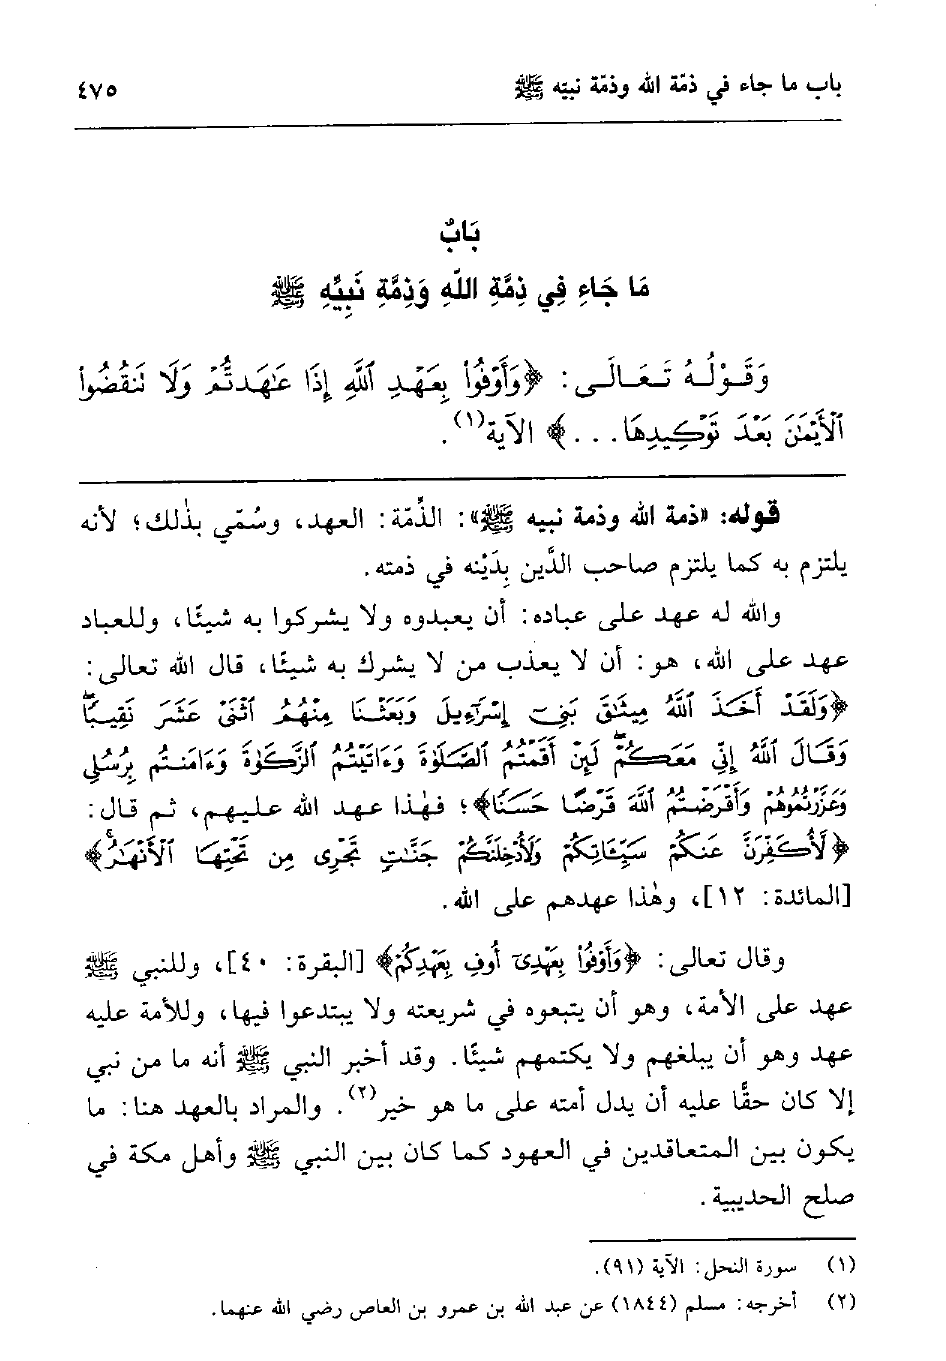 باب ما جاء في ذمّة الله وذمّة نبيّه ﷺ ٤٧٥
بَابٌ
مَا جَاءِ فِي ذِمَّةِ اللَّهِ وَذِمَّةِ نَبِيِّهِ ﷺ
وَقَـوْلُـهُ تَـعَـالَـى: ﴿وَأَوْفُواْ بِعَهْدِ ٱللَّهِ إِذَا عَٰهَدتُّمْ وَلَا تَنقُضُواْ
ٱلْأَيْمَٰنَ بَعْدَ تَوْكِيدِهَا...﴾ الآية(١).
قوله: «ذمة الله وذمة نبيه ﷺ»: الذِّمّة: العهد، وسُمّي بذٰلك؛ لأنه
يلتزم به كما يلتزم صاحب الدَّين بِدَيْنه في ذمته.
والله له عهد على عباده: أن يعبدوه ولا يشركوا به شيئًا، وللعباد
عهد على الله، هو: أن لا يعذب من لا يشرك به شيئًا، قال الله تعالى:
﴿وَلَقَدْ أَخَذَ ٱللَّهُ مِيثَٰقَ بَنِىٓ إِسْرَٰٓءِيلَ وَبَعَثْنَا مِنْهُمُ ٱثْنَىْ عَشَرَ نَقِيبًاۖ
وَقَالَ ٱللَّهُ إِنِّى مَعَكُمْۖ لَئِنْ أَقَمْتُمُ ٱلصَّلَوٰةَ وَءَاتَيْتُمُ ٱلزَّكَوٰةَ وَءَامَنتُم بِرُسُلِى
وَعَزَّرْتُمُوهُمْ وَأَقْرَضْتُمُ ٱللَّهَ قَرْضًا حَسَنًا﴾؛ فهٰذا عهد الله عليهم، ثم قال:
﴿لَّأُكَفِّرَنَّ عَنكُمْ سَيِّـَٔاتِكُمْ وَلَأُدْخِلَنَّكُمْ جَنَّٰتٍ تَجْرِى مِن تَحْتِهَا ٱلْأَنْهَٰرُۚ﴾
[المائدة: ١٢]، وهٰذا عهدهم على الله.
وقال تعالى: ﴿وَأَوْفُواْ بِعَهْدِىٓ أُوفِ بِعَهْدِكُمْ﴾ [البقرة: ٤٠]، وللنبي ﷺ
عهد على الأمة، وهو أن يتبعوه في شريعته ولا يبتدعوا فيها، وللأمة عليه
عهد وهو أن يبلغهم ولا يكتمهم شيئًا. وقد أخبر النبي ﷺ أنه ما من نبي
إلا كان حقًّا عليه أن يدل أمته على ما هو خير(٢). والمراد بالعهد هنا: ما
يكون بين المتعاقدين في العهود كما كان بين النبي ﷺ وأهل مكة في
صلح الحديبية.
(١) سورة النحل: الآية (٩١).
(٢) أخرجه: مسلم (١٨٤٤) عن عبد الله بن عمرو بن العاص رضي الله عنهما.